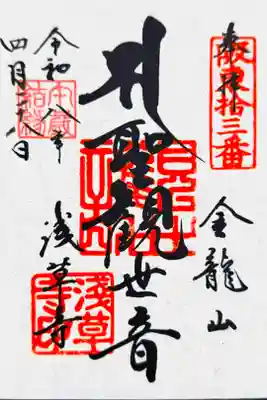 奉拝
坂東拾三番
金龍山
聖観世音
浅草寺
浅草寺印
令和八年